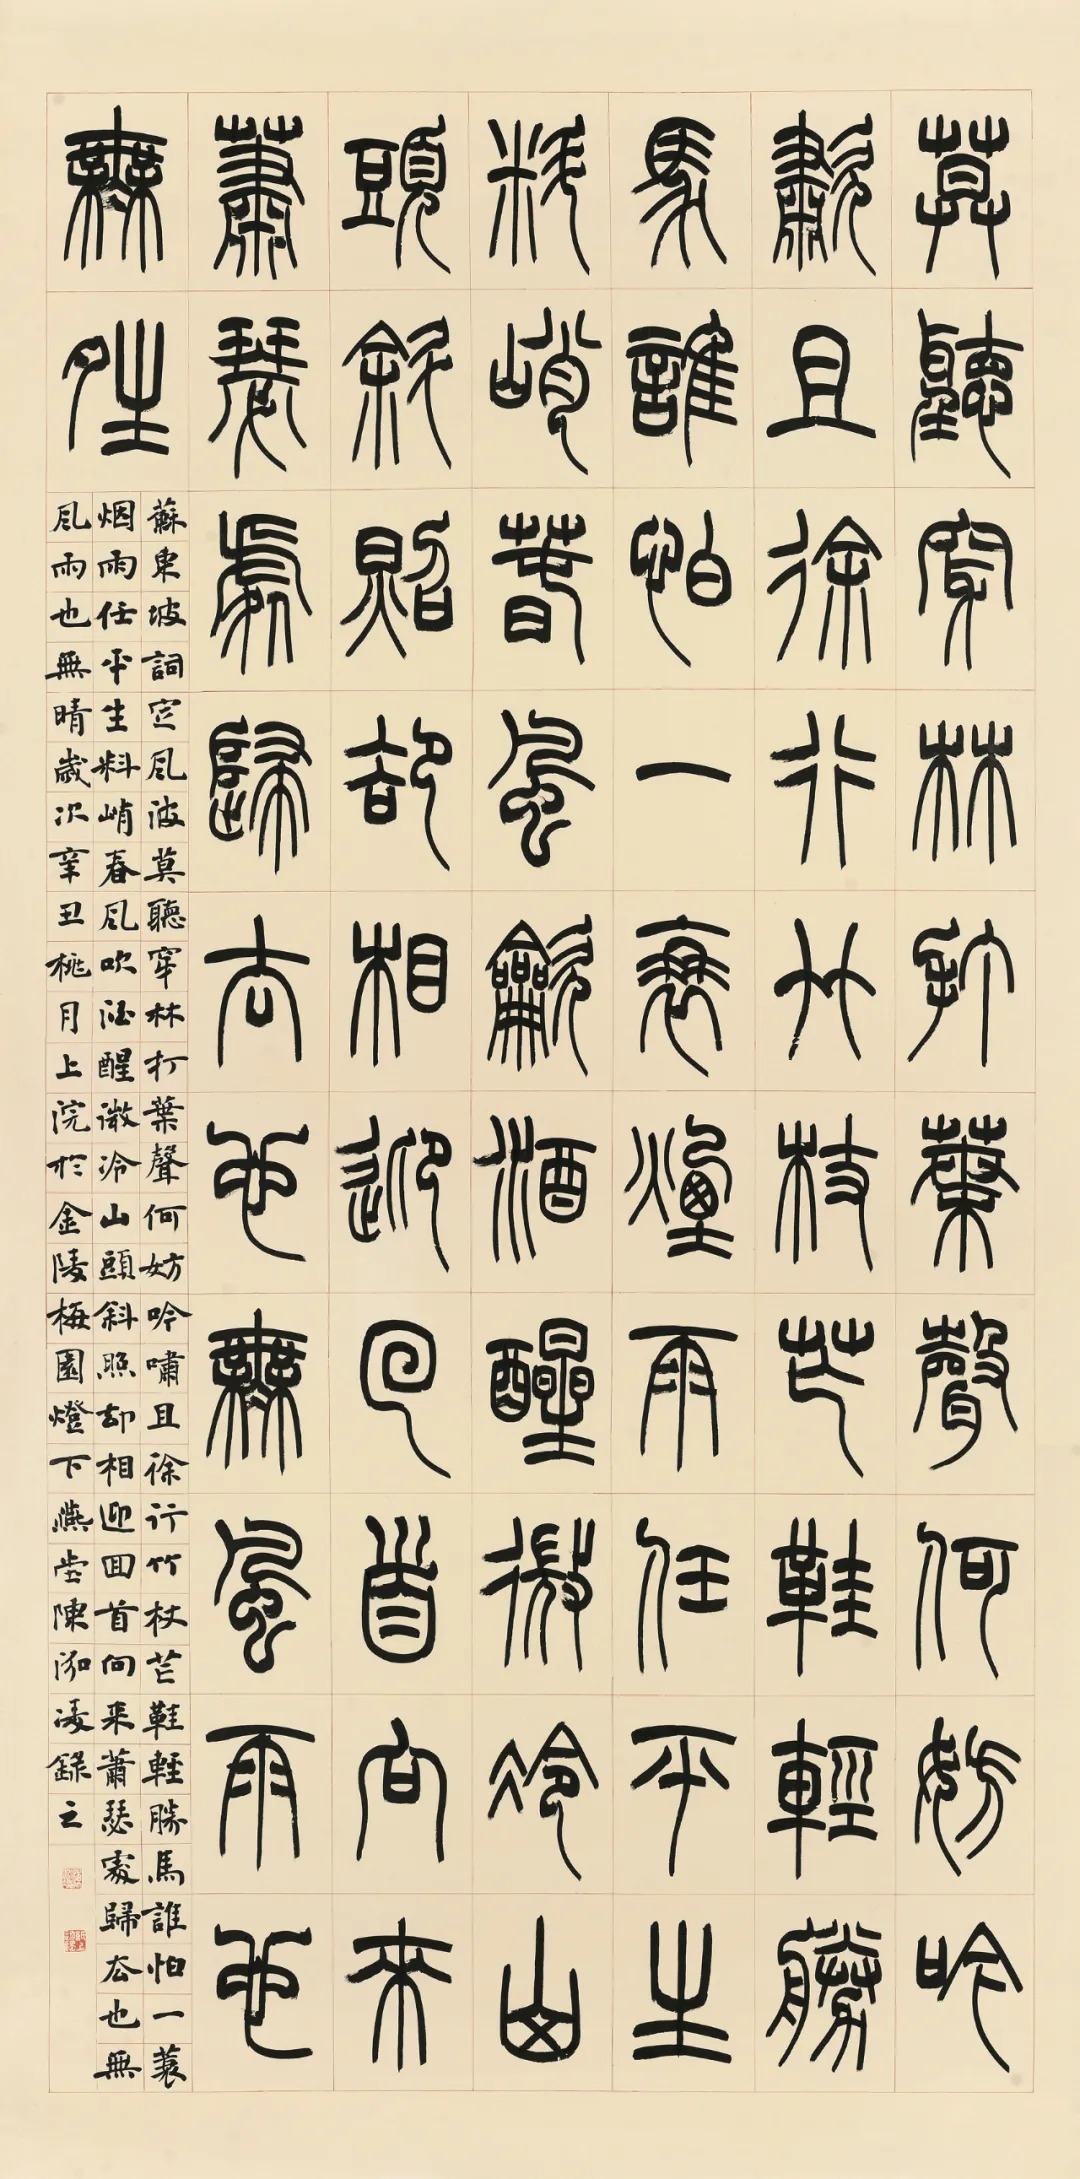 莫聽穿林打葉聲何妨吟
嘯且徐行竹杖芒鞋輕勝
馬誰怕一蓑煙雨任平生
料峭春風吹酒醒微冷山
頭斜照却相迎回首向來
蕭瑟處歸去也無風雨也
無晴
蘇東坡詞定風波莫聽穿林打葉聲何妨吟嘯且徐行竹杖芒鞋輕勝馬誰怕一蓑
烟雨任平生料峭春風吹酒醒微冷山頭斜照却相迎回首向來蕭瑟處歸去也無
風雨也無晴歲次辛丑桃月上浣於金陵梅園燈下燕堂陳泇凌錄之